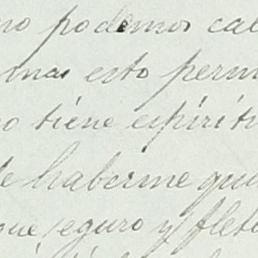 no podemos cal
mas esto perm
o tiene espirit
de haberme qui
que, seguro y flet